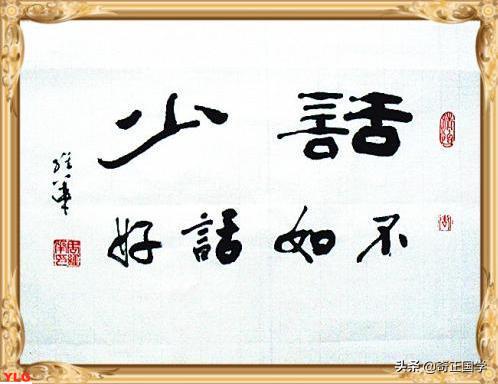 話少
不如話好
YLG
头条 @寄正国学